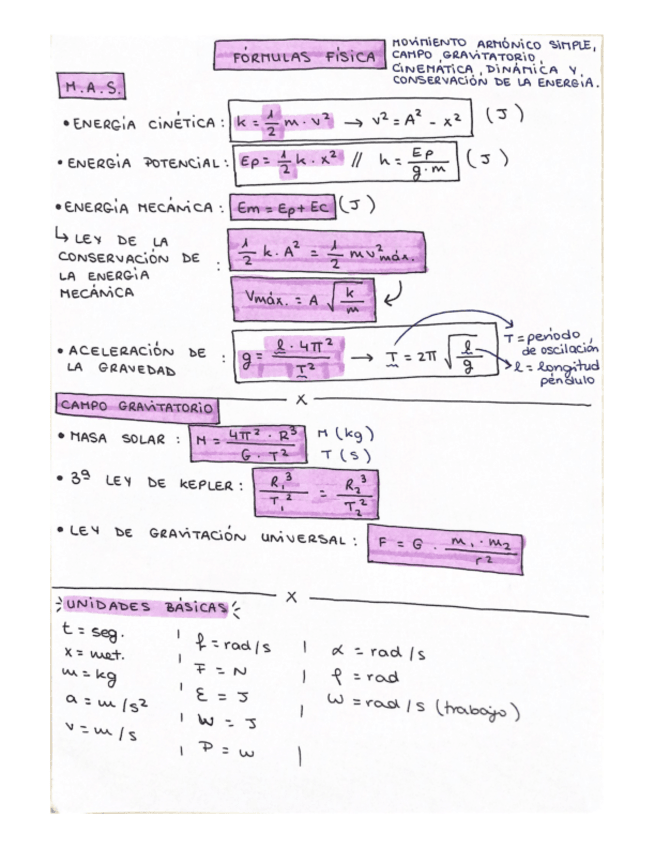 FÓRMULAS FÍSICA
MOVIMIENTO ARMÓNICO SIMPLE,
CAMPO GRAVITATORIO,
CINEMÁTICA, DINÁMICA Y
CONSERVACIÓN DE LA ENERGÍA.
M.A.S.
• ENERGÍA CINÉTICA: k = 1/2 m · v² → v² = A² - x² (J)
• ENERGÍA POTENCIAL: Ep = 1/2 k · x² // h = Ep / g·m (J)
• ENERGÍA MECÁNICA: Em = Ep + Ec (J)
↳ LEY DE LA
CONSERVACIÓN DE
LA ENERGÍA
MECÁNICA : 1/2 k · A² = 1/2 m v²máx.
Vmáx. = A √(k/m)
• ACELERACIÓN DE
LA GRAVEDAD : g = l · 4π² / T² → T = 2π √(l/g)
T = periodo
de oscilación
l = longitud
péndulo
x
CAMPO GRAVITATORIO
• MASA SOLAR: M = 4π² · R³ / G · T² M (kg)
T (s)
• 3ª LEY DE KEPLER: R₁³ / T₁² = R₂³ / T₂²
• LEY DE GRAVITACIÓN UNIVERSAL: F = G · m₁ · m₂ / r²
x
UNIDADES BÁSICAS
t = seg. | f = rad/s | α = rad/s
x = met. | F = N | φ = rad
m = kg | E = J | W = rad/s (trabajo)
a = m/s² | W = J
v = m/s | P = w |